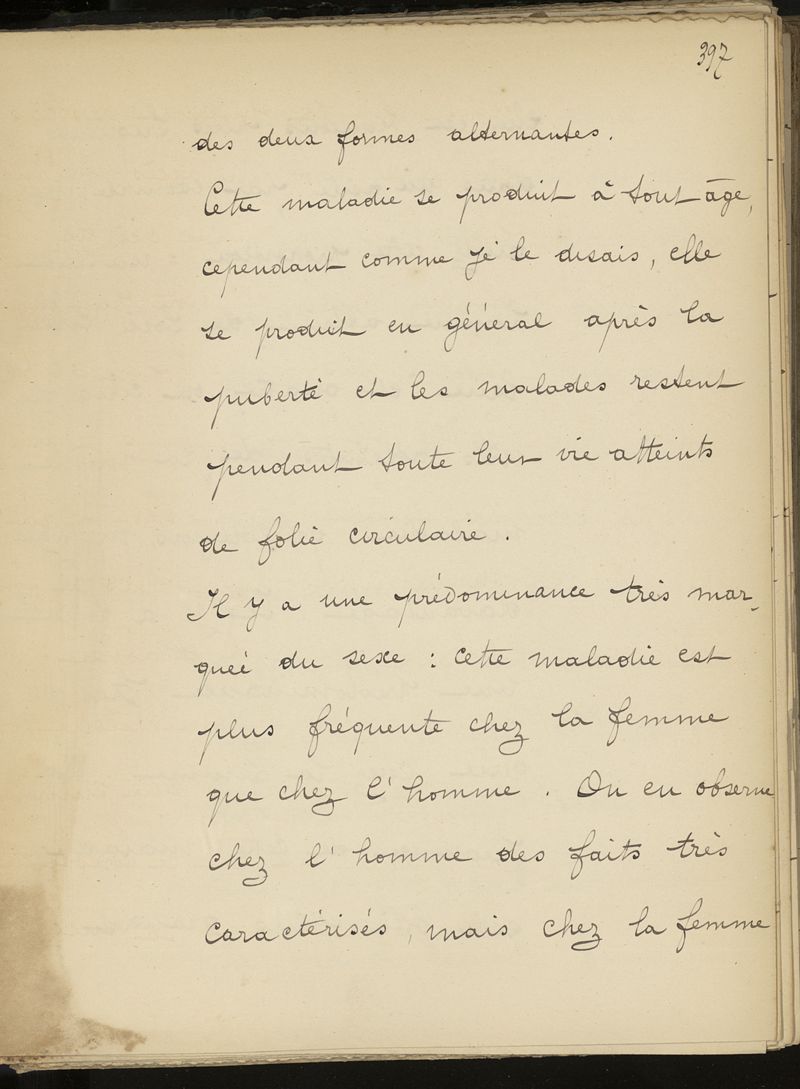 397
des deux formes alternantes.
Cette maladie se produit à tout âge,
cependant comme je le disais, elle
se produit en général après la
puberté et les malades restent
pendant toute leur vie atteints
de folie circulaire.
Il y a une prédominance très mar-
quée du sexe : cette maladie est
plus fréquente chez la femme
que chez l'homme. On en observe
chez l'homme des faits très
caractérisés, mais chez la femme